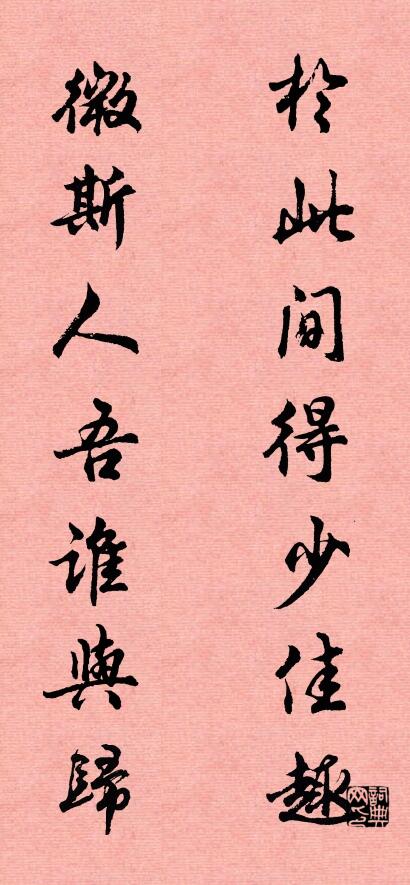 於此間得少佳趣
微斯人吾誰與歸
詞典网